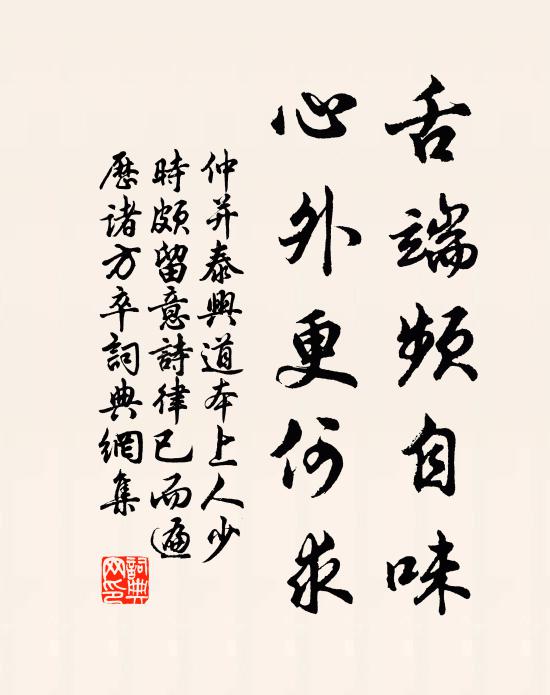 舌端頻自味
心外更何求
仲并泰興道本上人少
時頗留意詩律已而遍
歷諸方卒詞典網集
詞典
网印